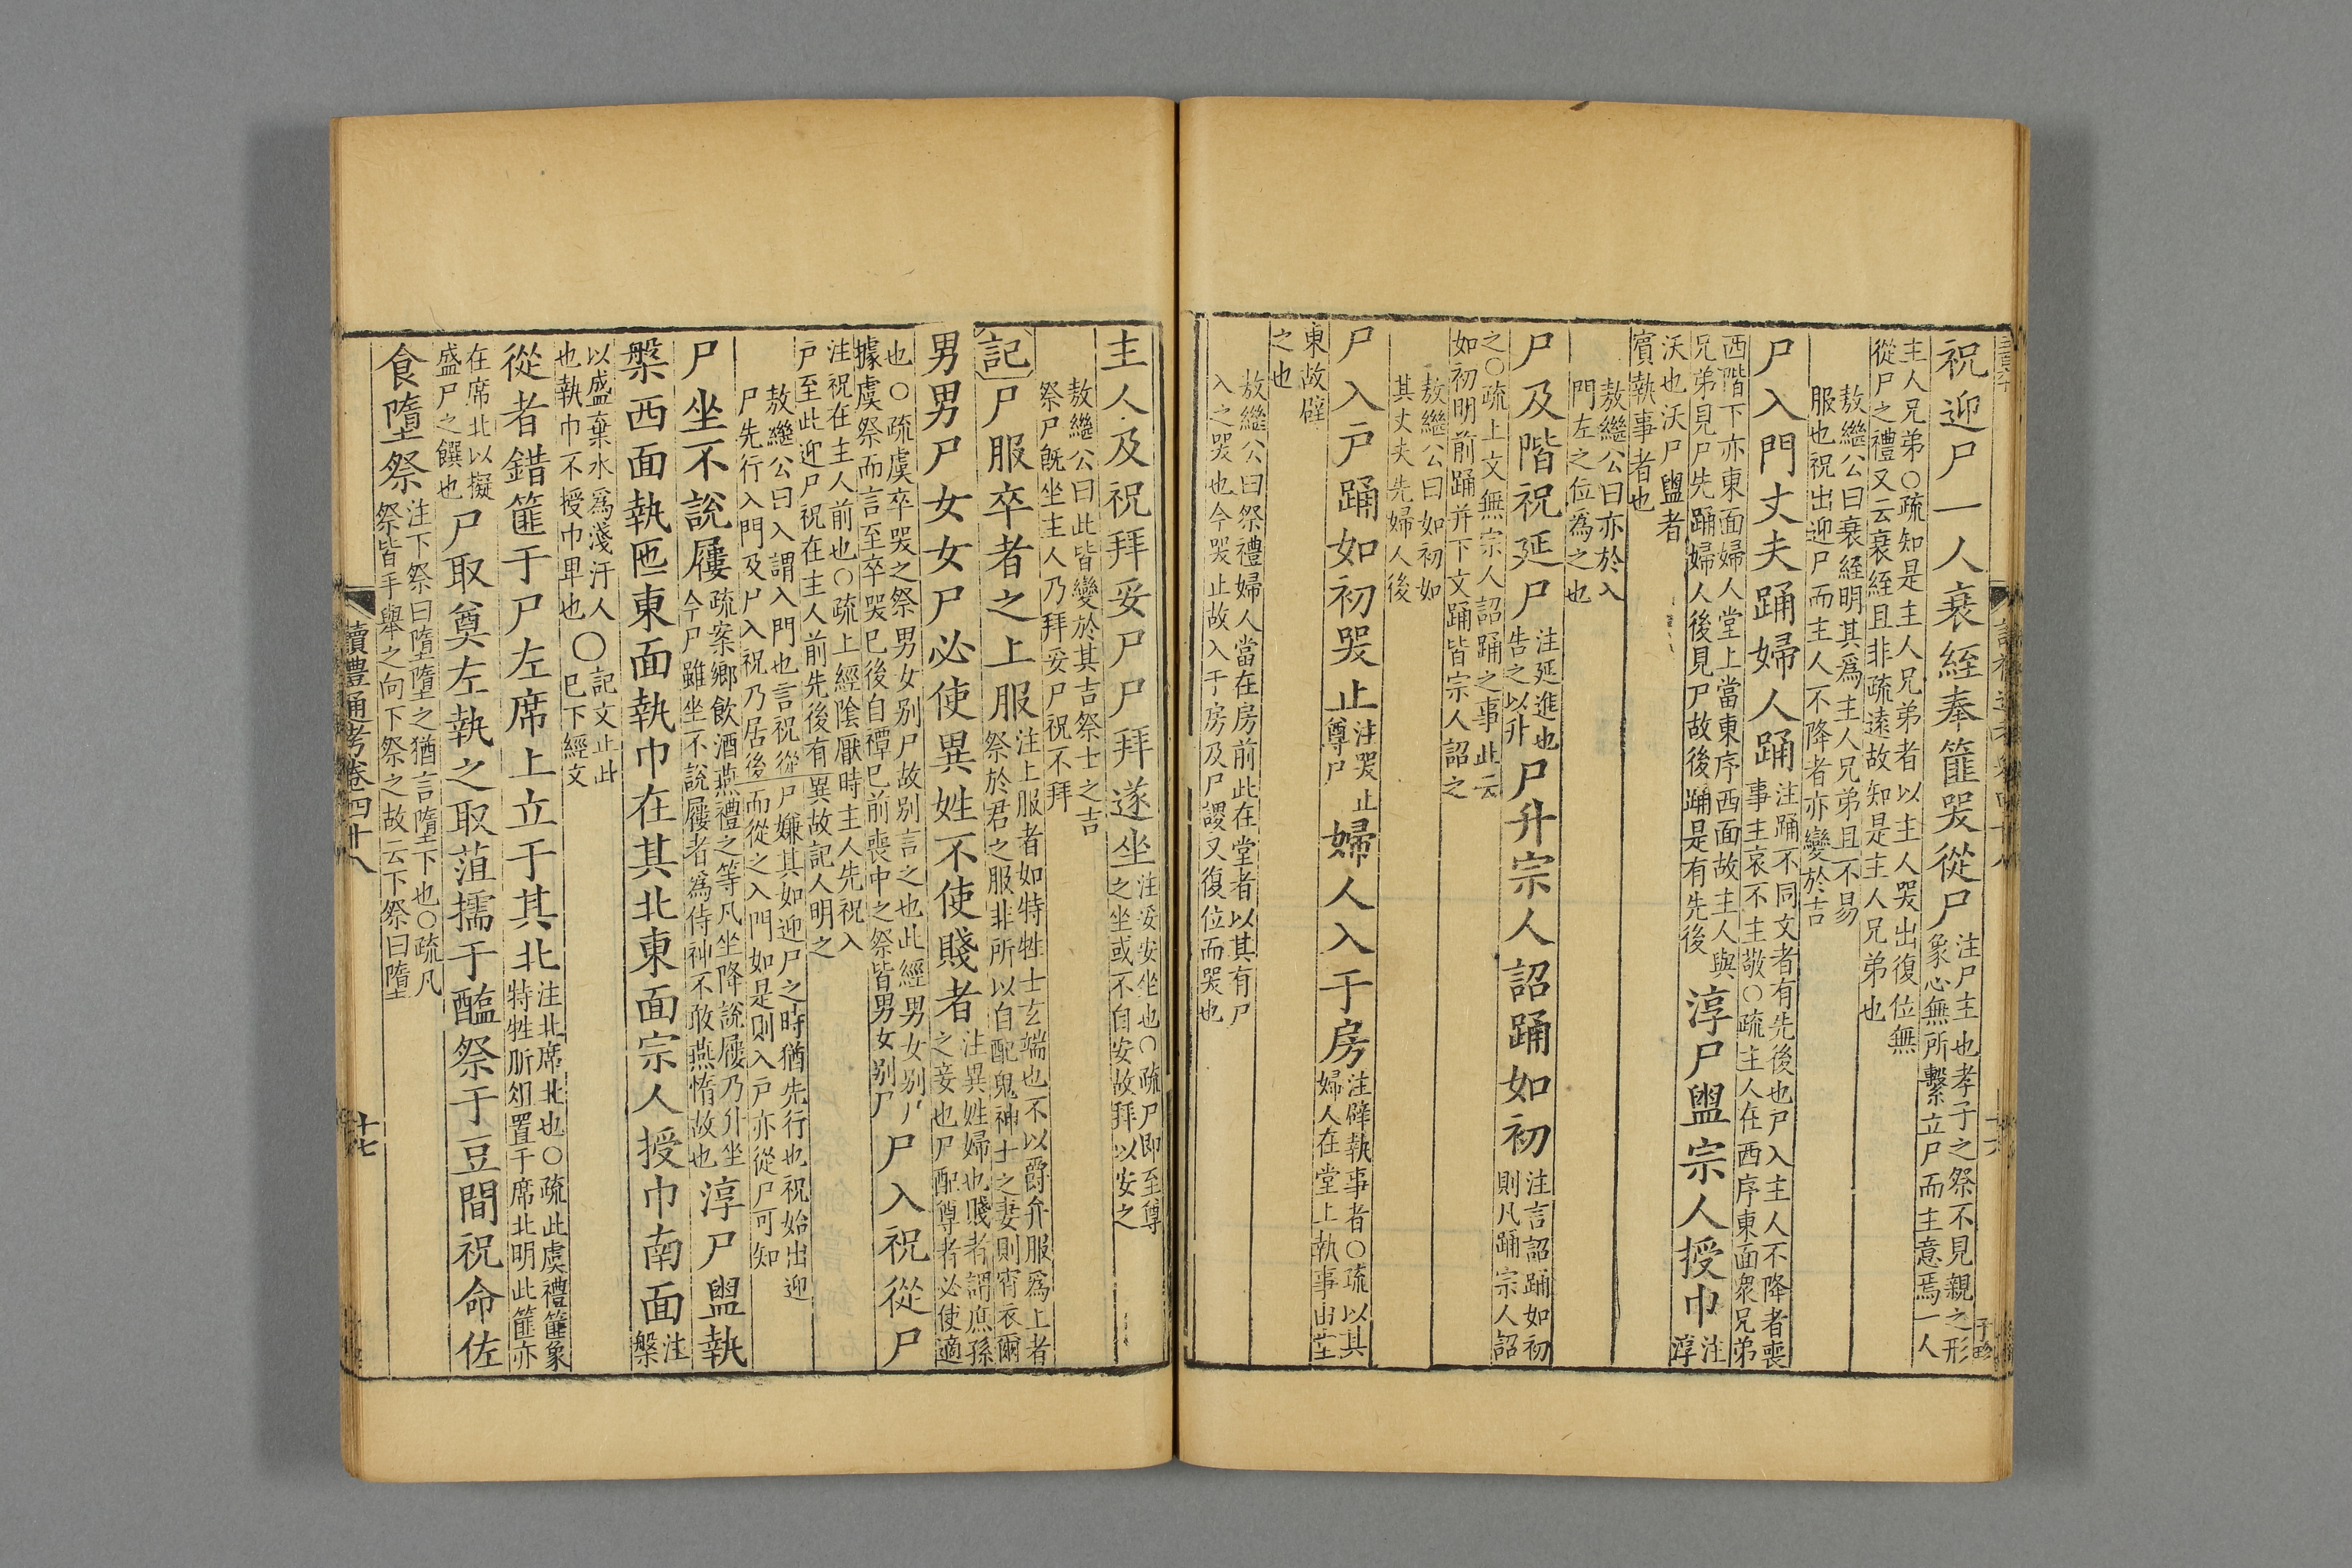 祝迎尸一人衰絰奉篚哭從尸注尸主也孝子之祭不見親之形象心無所繫立尸而主意焉一人
主人兄弟○疏知是主人兄弟者以主人哭出復位無從尸之禮又云衰絰且非疏遠故知是主人兄弟也
敖繼公曰衰絰明其爲主人兄弟且不易服也祝出迎尸而主人不降者亦變於吉
尸入門丈夫踊婦人踊注踊不同文者有先後也尸入主人不降者喪事主哀不主敬○疏主人在西序東面衆兄弟
西階下亦東面婦人堂上當東序西面故主人與兄弟見尸先踊婦人後見尸故後踊是有先後淳尸盥宗人授巾注淳
沃也沃尸盥者賓執事者也
敖繼公曰亦於入門左之位爲之也
尸及階祝延尸注延進也告之以升尸升宗人詔踊如初注言詔踊如初則凡踊宗人詔
之○疏上文無宗人詔踊之事此云如初明前踊并下文踊皆宗人詔之
敖繼公曰如初如其丈夫先婦人後
尸入戸踊如初哭止注哭止尊尸婦人入于房注辟執事者○疏以其婦人在堂上執事由堂
東故辟之也
敖繼公曰祭禮婦人當在房前此在堂者以其有尸入之哭也今哭止故入于房及尸謖又復位而哭也
主人及祝拜妥尸尸拜遂坐注妥安坐也○疏尸即至尊之坐或不自安故拜以安之
敖繼公曰此皆變於其吉祭士之吉祭尸旣坐主人乃拜妥尸祝不拜
記尸服卒者之上服注上服者如特牲士玄端也不以爵弁服爲上者祭於君之服非所以自配鬼神士之妻則宵衣爾
男男尸女女尸必使異姓不使賤者注異姓婦也賤者謂庶孫之妾也尸配尊者必使適
也○疏虞卒哭之祭男女别尸故别言之也此經男女别尸據虞祭而言至卒哭已後自禫已前喪中之祭皆男女别尸尸入祝從尸
注祝在主人前也○疏上經陰厭時主人先祝入戸至此迎尸祝在主人前先後有異故記人明之
敖繼公曰入謂入門也言祝從尸嫌其如迎尸之時猶先行也祝始出迎尸先行入門及尸入祝乃居後而從之入門如是則入戸亦從尸可知
尸坐不說屨疏案鄉飲酒燕禮之等凡坐降說屨乃升坐今尸雖坐不說屨者爲侍神不敢燕惰故也淳尸盥執
槃西面執匜東面執巾在其北東面宗人授巾南面注槃
以盛棄水爲淺汙人也執巾不授巾卑也○記文止此已下經文
從者錯篚于尸左席上立于其北注北席北也○疏此虞禮篚象特牲肵俎置于席北明此篚亦
在席北以擬盛尸之饌也尸取奠左執之取菹擩于醢祭于豆間祝命佐
食墮祭注下祭曰墮墮之猶言墮下也○疏凡祭皆手舉之向下祭之故云下祭曰墮
讀禮通考卷四十八
十七